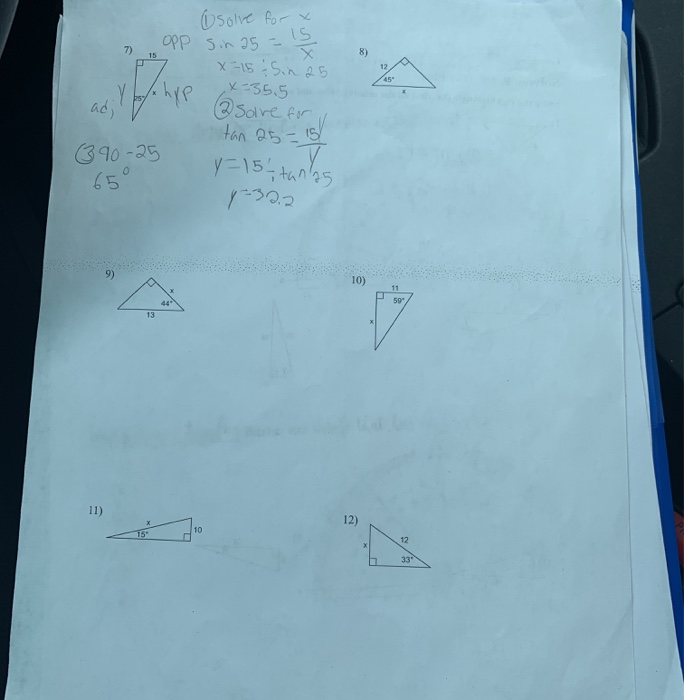 ① Solve for x
opp sin 25 = 15/x
7)
15
25°
x
hyp
adj y
x = 15 ÷ sin 25
x = 35.5
② Solve for y
tan 25 = 15/y
y = 15 ÷ tan 25
y = 32.2
③ 90 - 25
65°
8)
12
45°
x
9)
x
44°
13
10)
11
59°
x
11)
x
15°
10
12)
x
12
33°